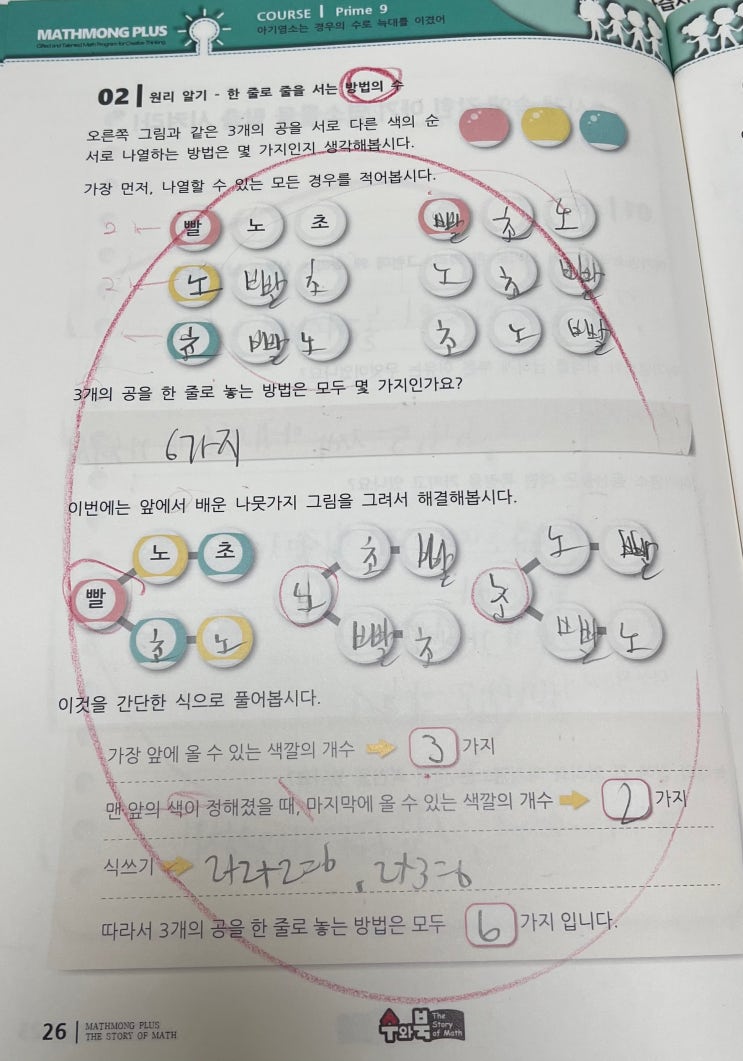 MATHMONG PLUS
Gifted and Talented Math Program for Creative Thinking
COURSE | Prime 9
아기염소는 경우의 수로 늑대를 이겼어
02 | 원리 알기 - 한 줄로 줄을 서는 방법의 수
오른쪽 그림과 같은 3개의 공을 서로 다른 색의 순
서로 나열하는 방법은 몇 가지인지 생각해봅시다.
가장 먼저, 나열할 수 있는 모든 경우를 적어봅시다.
2 빨 노 초 빨 초 노
2 노 빨 초 노 초 빨
초 빨 노 초 노 빨
3개의 공을 한 줄로 놓는 방법은 모두 몇 가지인가요?
6가지
이번에는 앞에서 배운 나뭇가지 그림을 그려서 해결해봅시다.
노 초 초 빨 노 빨
빨 노 초
초 노 빨 초 빨 노
이것을 간단한 식으로 풀어봅시다.
가장 앞에 올 수 있는 색깔의 개수 3 가지
맨 앞의 색이 정해졌을 때, 마지막에 올 수 있는 색깔의 개수 2 가지
식쓰기 2+2+2=6, 2+3=6
따라서 3개의 공을 한 줄로 놓는 방법은 모두 6 가지 입니다.
26 | MATHMONG PLUS
THE STORY OF MATH
수와북 The Story of Math